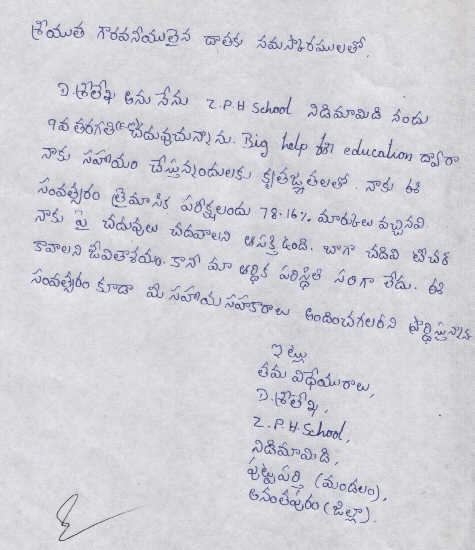 శ్రీయుత గౌరవనీయులైన దాతకు నమస్కారములతో.
D.శ్రీలేఖ అను నేను Z.P.H School నిడిమామిడి నందు
9వ తరగతి చదువుచున్నాను. Big help for education ద్వారా
నాకు సహాయం చేస్తున్నందులకు కృతజ్ఞతలతో. నాకు ఈ
సంవత్సరం త్రైమాసిక పరీక్షలందు 78.16% మార్కులు వచ్చినవి
నాకు పై చదువులు చదవాలని ఆసక్తి ఉంది. బాగా చదివి టీచర్
కావాలని జీవితాశయం. కానీ మా ఆర్థిక పరిస్థితి సరిగా లేదు. ఈ
సంవత్సరం కూడా మీ సహాయ సహకారాలు అందించగలరని ప్రార్థిస్తున్నాను
ఇట్లు
తమ విధేయురాలు,
D.శ్రీలేఖ,
Z.P.H.School,
నిడిమామిడి,
పుట్టపర్తి (మండలం),
అనంతపురం (జిల్లా).